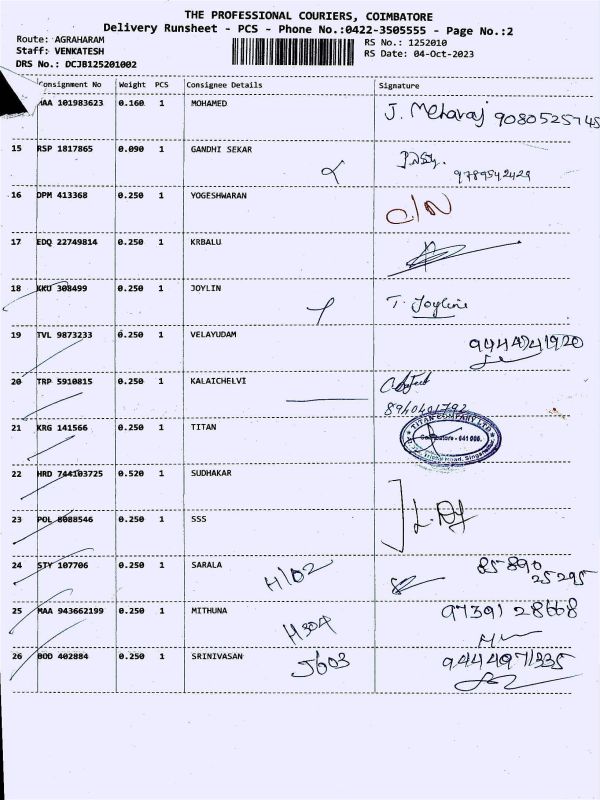 THE PROFESSIONAL COURIERS, COIMBATORE
Delivery Runsheet - PCS - Phone No.:0422-3505555 - Page No.:2
Route: AGRAHARAM
RS No.: 1252010
Staff: VENKATESH
RS Date: 04-Oct-2023
DRS No.: DCJB125201002
Consignment No Weight PCS Consignee Details Signature
MAA 101983623 0.160 1 MOHAMED J. Meharaj 9080525745
15 RSP 1817865 0.090 1 GANDHI SEKAR
9789542429
16 DPM 413368 0.250 1 YOGESHWARAN O/N
17 EDQ 22749814 0.250 1 KRBALU
18 KKU 308499 0.250 1 JOYLIN T. Joyline
19 TVL 9873233 0.250 1 VELAYUDAM
20 TRP 5910815 0.250 1 KALAICHELVI
21 KRG 141566 0.250 1 TITAN
TITAN COMPANY LTD
Coimbatore - 641 005.
22 HRD 744103725 0.520 1 SUDHAKAR
23 POL 8088546 0.250 1 SSS
24 STY 107706 0.250 1 SARALA H102 85890
25295
25 MAA 943662199 0.250 1 MITHUNA H304 9739128668
26 BOD 402884 0.250 1 SRINIVASAN J603 9444971335